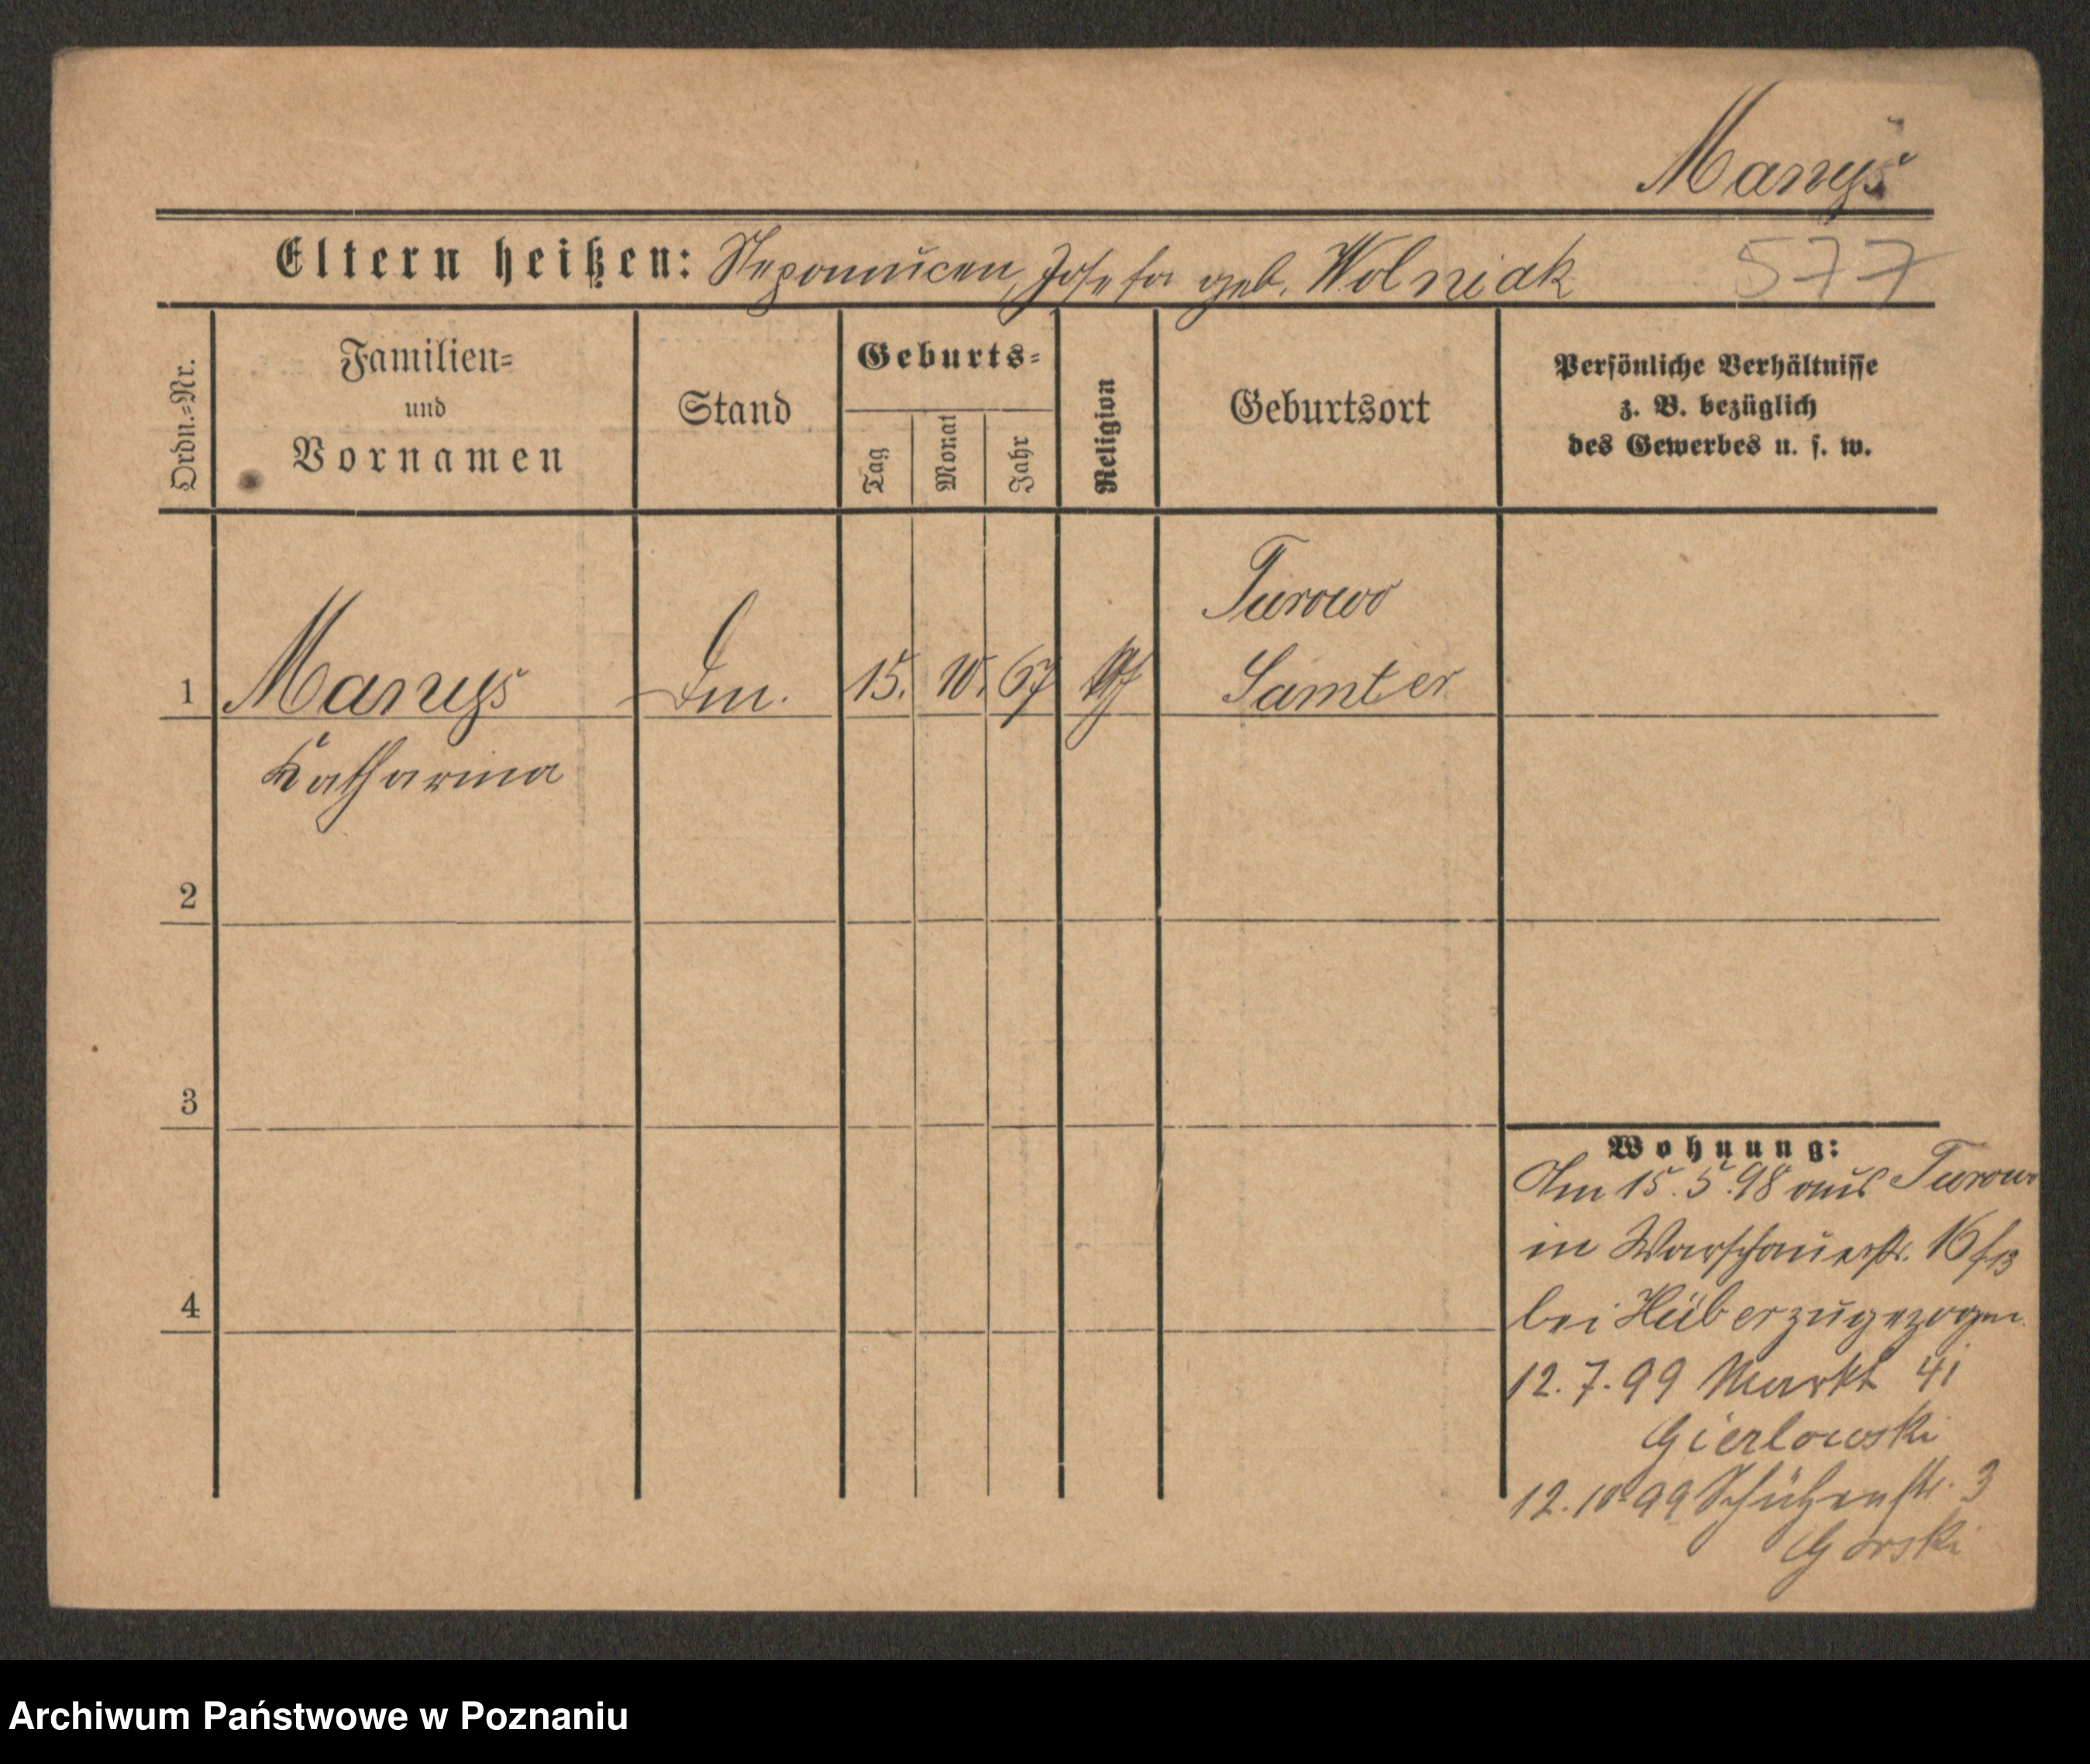 Manys
Eltern heißen: Nepomucen, Josefa geb. Wolniak 577
Ordn.=Nr.
Familien=
und
Vornamen
Stand
Geburts=
Tag
Monat
Jahr
Religion
Geburtsort
Persönliche Verhältnisse
z. B. bezüglich
des Gewerbes u. s. w.
Turowo
1 Manys 15. 10. 67 Samter
Katharina
2
3
4
Wohnung:
Am 15.5.98 aus Turowo
in Warschauerstr. 16
bei Hüber zugezogen.
12.7.99 Markt 41
Gierlowski
12.10.99 Schützenstr. 3
Gorski
Archiwum Państwowe w Poznaniu